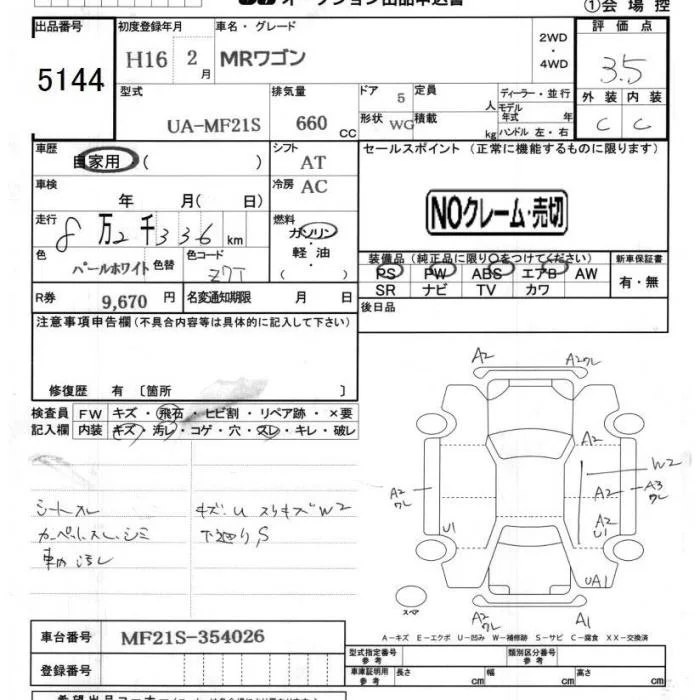 オークション出品申込書
①会場控
出品番号 初度登録年月 車名・グレード 2WD・4WD 評価点
5144 H16 2月 MRワゴン 3.5
型式 排気量 ドア 5 定員 人 ディーラー・並行 外装 内装
UA-MF21S 660cc 形状 WG 積載 kg モデル年式 年 ハンドル 左・右 C C
車歴 シフト セールスポイント (正常に機能するものに限ります)
自家用 ( ) AT
車検 年 月(日) 冷房 AC
NOクレーム・売切
走行 8万2千336km 燃料 ガソリン・軽油 ( )
色 パールホワイト 色替 色コード Z7T
装備品 (純正品に限り○をつけてください) 新車保証書
PS PW ABS エアB AW 有・無
SR ナビ TV カワ
R券 9,670円 名変通知期限 月 日 後日品
注意事項申告欄 (不具合内容等は具体的に記入して下さい)
修復歴 有 〔箇所 〕
検査員 FW キズ・飛石・ヒビ割・リペア跡・×要
記入欄 内装 キズ・汚レ・コゲ・穴・スレ・キレ・破レ
シートスレ キズU スリキズW2
カーペットスレ、シミ 下廻りS
車内汚レ
A2 A2ワレ
A2
W2
A2ワレ A2 A3ワレ
U1 A2U1
UA1
スペア A2ワレ A1
A－キズ E－エクボ U－凹み W－補修跡 S－サビ C－腐食 XX－交換済
車台番号 MF21S-354026
型式指定番号 参考 類別区分番号 参考
登録番号 車庫証明用 参考 長さ cm 幅 cm 高さ cm